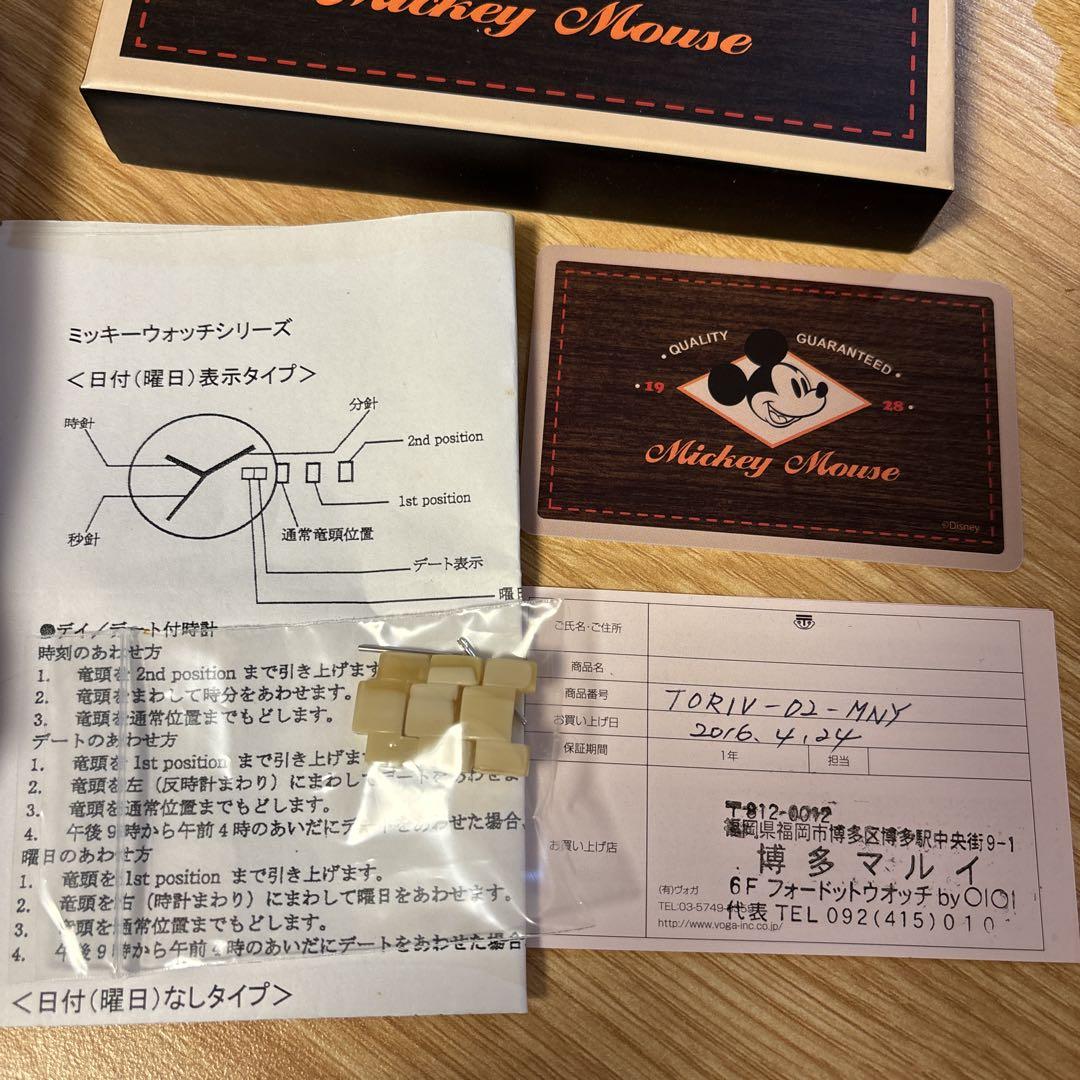 Mickey Mouse
ミッキーウォッチシリーズ
＜日付(曜日)表示タイプ＞
時針
分針
2nd position
1st position
秒針
通常竜頭位置
デート表示
曜日
●デイ／デート付時計
時刻のあわせ方
1. 竜頭を 2nd position まで引き上げます
2. 竜頭をまわして時分をあわせます。
3. 竜頭を通常位置までもどします。
デートのあわせ方
1. 竜頭を 1st position まで引き上げます
2. 竜頭を左（反時計まわり）にまわしてデートをあわせま
3. 竜頭を通常位置までもどします。
4. 午後９時から午前４時のあいだにデートをあわせた場合、
曜日のあわせ方
1. 竜頭を 1st position まで引き上げます。
2. 竜頭を右（時計まわり）にまわして曜日をあわせます。
3. 竜頭を通常位置までもどします。
4. 午後９時から午前４時のあいだにデートをあわせた場合
＜日付(曜日)なしタイプ＞
・QUALITY GUARANTEED・
・19 28・
Mickey Mouse
©Disney
ご氏名・ご住所
商品名
商品番号 TORIV-02-MNY
お買い上げ日 2016.4.24
保証期間 1年 担当
お買い上げ店
〒812-0012
福岡県福岡市博多区博多駅中央街9-1
博多マルイ
6F フォードットウオッチ by OIOI
代表 TEL 092(415)010
(有)ヴォガ
TEL:03-5749-
http://www.voga-inc.co.jp/